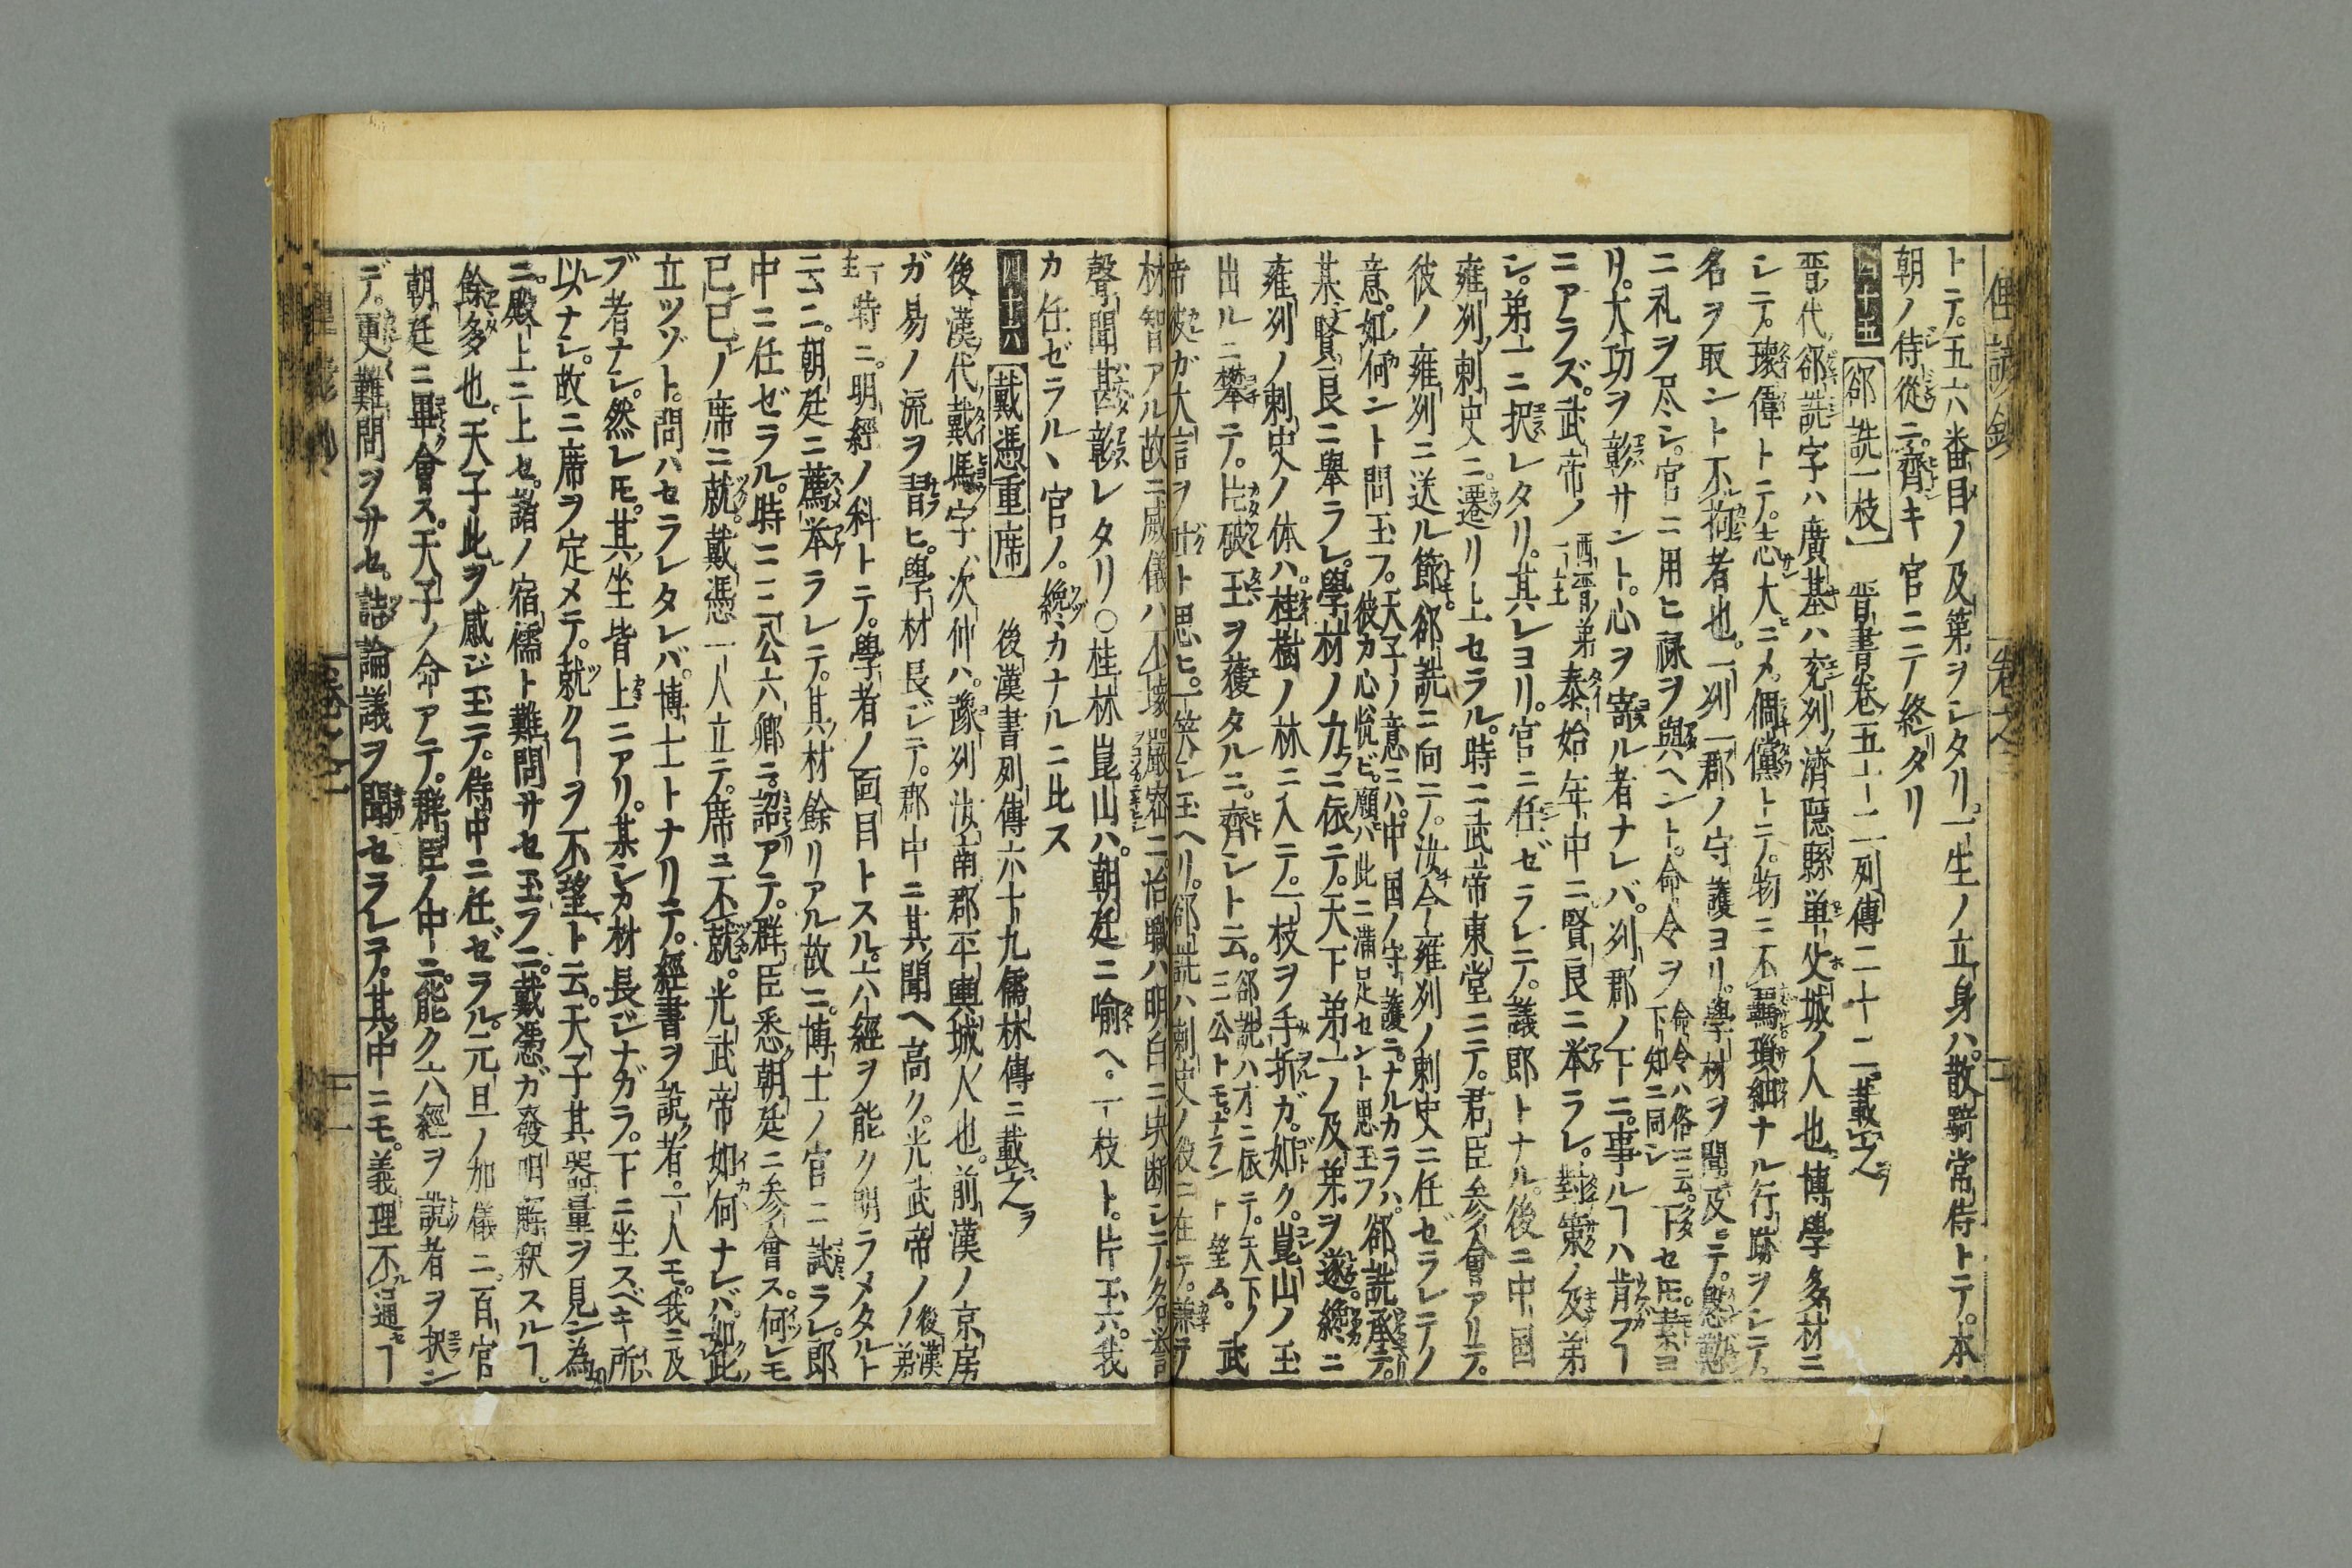 トテ。五六番目ノ及第ヲシタリ。一生ノ立身ハ。散騎常侍トテ。本
朝ノ侍從ニ。齊キ官ニテ終タリ
四十五 郤詵一枝 晋書巻五十二列傳二十二載之
晋代郤詵字ハ廣基ハ兖州濟隠縣単父城ノ人也。博學多材ニ
シテ。瓌偉トテ。志大ニメ。倜儻トテ。物ニ不羈瑣細ナル行跡ヲシテ。
名ヲ取ント不拘者也。一州一郡ノ守護ヨリ。學材ヲ聞及ニテ。慇懃
ニ礼ヲ尽シ。官ニ用ヒ禄ヲ與ヘント。命令ヲ 命令ハ俗ニ云。下 下知ニ同シ セ𪜈。素ヨ
リ。大功ヲ彰サント。心ヲ寄ル者ナレバ。州郡ノ下ニ。事ルヿハ肯フヿ
ニアラズ。武帝ノ 西晋ノ第一主 泰始年中ニ賢良ニ挙ラレ。對策ノ及第
シ。第一ニ択レタリ。其レヨリ。官ニ任ゼラレテ。議郎トナル。後ニ中國
雍州刺史ニ。遷リ上セラル。時ニ武帝東堂ニテ。君臣参會アリテ。
彼ノ雍州ニ送ル節。郤詵ニ向テ。汝今雍州ノ刺史ニ任ゼラレテノ
意。如何ント問玉フ。天子ノ意ニハ。中国ノ守護ニ。ナルカラハ。彼カ心悦ビ。願ハ此ニ滿足セント思玉フ 郤詵承テ。
某賢良ニ舉ラレ。學材ノ力ニ依テ。天下第一ノ及第ヲ遂。纔ニ
雍州ノ刺史ノ体ハ。桂樹ノ林ニ入テ。一枝ヲ手折ガ。如ク。崑山ノ玉
出ルニ攀テ。片破玉ヲ獲タルニ。齊シト云。郤詵ハオニ依テ。天下ノ三公トモナラント望ム。 武
帝彼ガ大言ヲ吐ト思ヒ。一笑シ玉ヘリ。郤詵ハ刺史ノ役ニ在テ。謙テ
材智アル故ニ威儀ハ不壊嚴密ニ。治職ハ明白ニ决断シテ。名誉
聲聞甚彰レタリ〇桂林崑山ハ。朝廷ニ喻ヘ。一枝ト。片玉六。我
カ任ゼラル丶官ノ。纔カナルニ比ス
四十六 戴憑重席 後漢書列傳六十九儒林傳ニ載之
後漢代戴憑字次仲ハ。豫州汝南郡平輿城人也。前漢ノ京房
ガ易ノ流ヲ習ヒ。學材長ジテ。郡中ニ其聞ヘ高ク。光武帝ノ 後漢ノ第
一主 特ニ。明經ノ科トテ。學者ノ面目トスル。六經ヲ能ク明ラメタルト
云ニ。朝廷ニ薦挙ラレテ。其材餘リアル故ニ。博士ノ官ニ試ラレ。郎
中ニ任ゼラル。時ニ三公六卿ニ。詔アテ。群臣悉朝廷ニ参會ス。何レモ
已已ノ席ニ就。戴憑一人立テ。席ニ不就。光武帝如何ナレバ。如此
立ツゾト。問ハセラレタレバ。博士トナリテ。經書ヲ說者。一人モ。我ニ及
ブ者ナシ。然レ𪜈。其坐皆上ニアリ。某シカ材長ジナガラ。下ニ坐スベキ所
以ナシ。故ニ席ヲ定メテ。就クヿヲ不望ト云。天子其器量ヲ見ン為
ニ。殿上ニ上セ。諸ノ宿儒ト難問サセ玉フニ。戴憑ガ發明觧釈スルヿ。
餘多也。天子此ヲ感ジ玉テ。侍中ニ任ゼラル。元旦ノ加儀ニ。百官
朝廷ニ畢會ス。天子ノ命アテ。群臣ノ中ニ。能ク六經ヲ説者ヲ択ン
デ。更難問ヲサセ。詰論議ヲ聞セラレテ。其中ニモ。義理不通ヿ